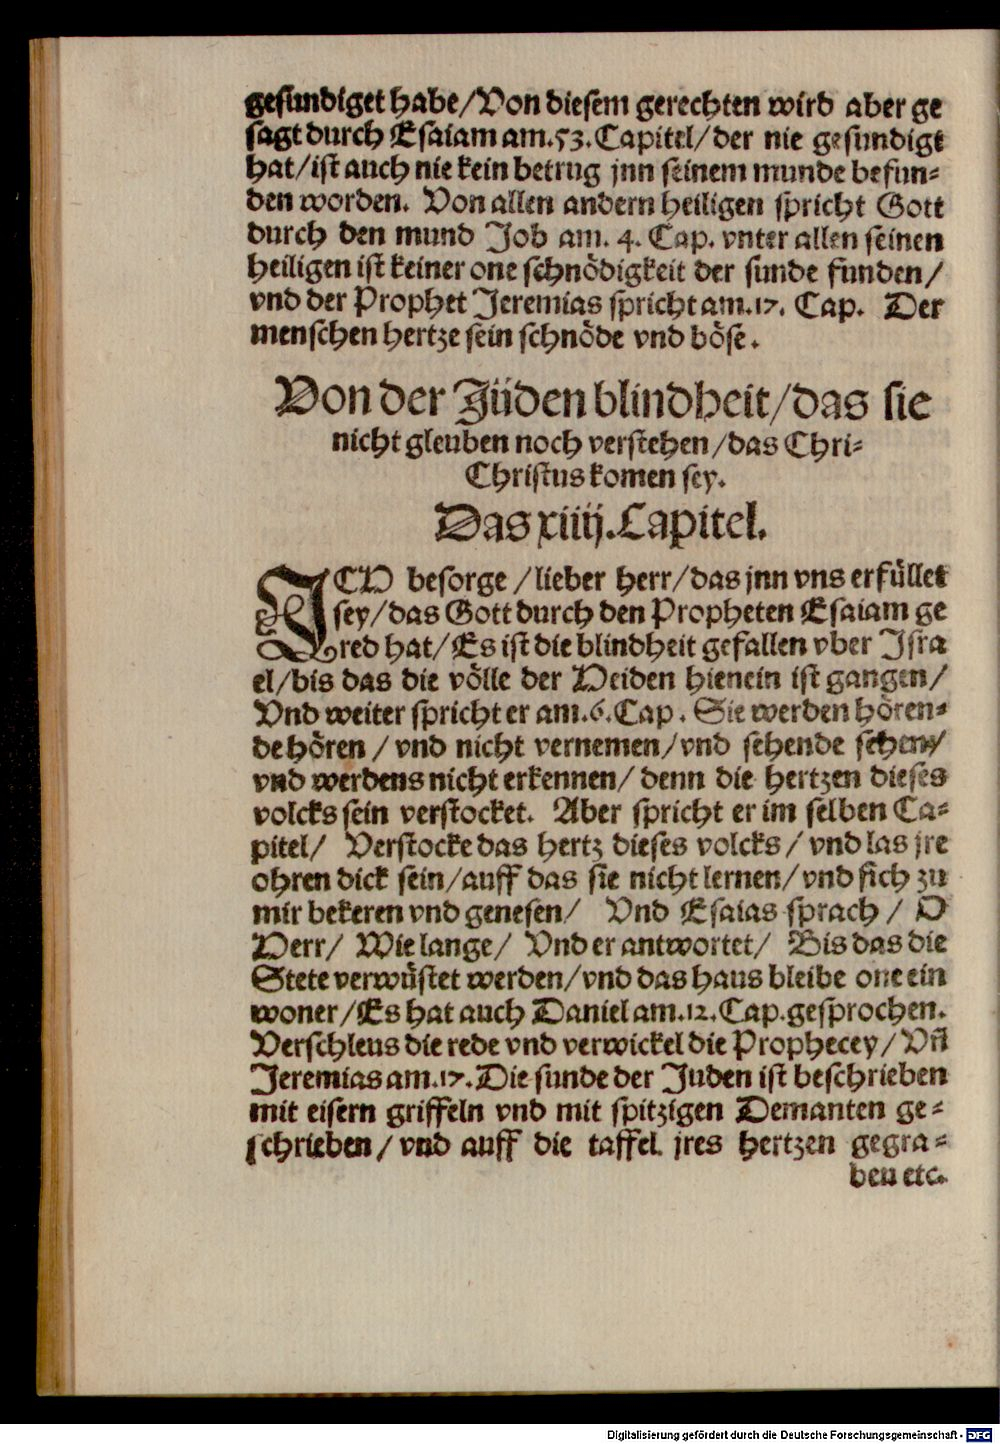 gesundiget habe/Von diesem gerechten wird aber ge
sagt durch Esaiam am.53.Capitel/der nie gesundigt
hat/ist auch nie kein betrug jnn seinem munde befun-
den worden. Von allen andern heiligen spricht Gott
durch den mund Job am. 4. Cap. vnter allen seinen
heiligen ist keiner one schnödigkeit der sunde funden/
vnd der Prophet Jeremias spricht am.17. Cap. Der
menschen hertze sein schnöde vnd böse.
Von der Jüden blindheit/das sie
nicht gleuben noch verstehen/das Chri-
Christus komen sey.
Das xiiij.Capitel.
ICH besorge/lieber herr/das jnn vns erfüllet
sey/das Gott durch den Propheten Esaiam ge
red hat/Es ist die blindheit gefallen vber Isra
el/bis das die völle der Heiden hienein ist gangen/
Vnd weiter spricht er am.6.Cap. Sie werden hören-
de hören/vnd nicht vernemen/vnd sehende sehen/
vnd werdens nicht erkennen/denn die hertzen dieses
volcks sein verstocket. Aber spricht er im selben Ca-
pitel/ Verstocke das hertz dieses volcks/vnd las jre
ohren dick sein/auff das sie nicht lernen/vnd sich zu
mir bekeren vnd genesen/ Vnd Esaias sprach/ O
Herr/ Wie lange/ Vnd er antwortet/ Bis das die
Stete verwüstet werden/vnd das haus bleibe one ein
woner/Es hat auch Daniel am.12.Cap.gesprochen.
Verschleus die rede vnd verwickel die Prophecey/Vñ
Jeremias am.17.Die sunde der Juden ist beschrieben
mit eisern griffeln vnd mit spitzigen Demanten ge-
schrieben/vnd auff die taffel jres hertzen gegra-
ben etc.
Digitalisierung gefördert durch die Deutsche Forschungsgemeinschaft - DFG